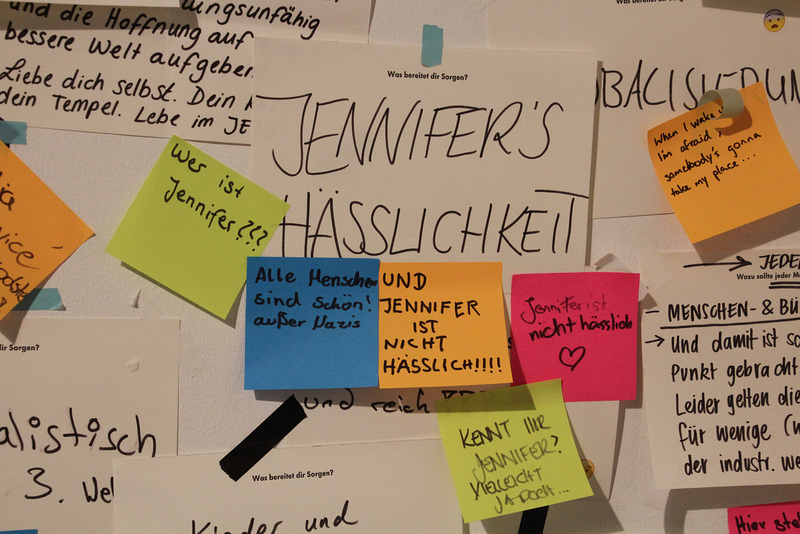 und die Hoffnung auf
bessere Welt aufgeben
Liebe dich selbst. Dein
dein Tempel. Lebe im JE
Was bereitet dir Sorgen?
JENNIFER'S
HÄSSLICHKEIT
Wer ist
Jennifer???
Alle Menschen
sind schön!
außer Nazis
UND
JENNIFER
IST
NICHT
HÄSSLICH!!!!
Jennifer ist
nicht hässlich
♡
und reich
KENNT IHR
JENNIFER?
VIELLEICHT
JA DOCH...
When I wake
I'm afraid
somebody's gonna
take my place...
JEDE
Wozu sollte jeder
MENSCHEN- & BÜ
→ Und damit ist sc
Punkt gebracht
Leider gelten die
für wenige
der industr. we
Hier ste
dir Sorgen?
alistisch
3. Wel
Was bereitet dir Sorgen?
Kinder und